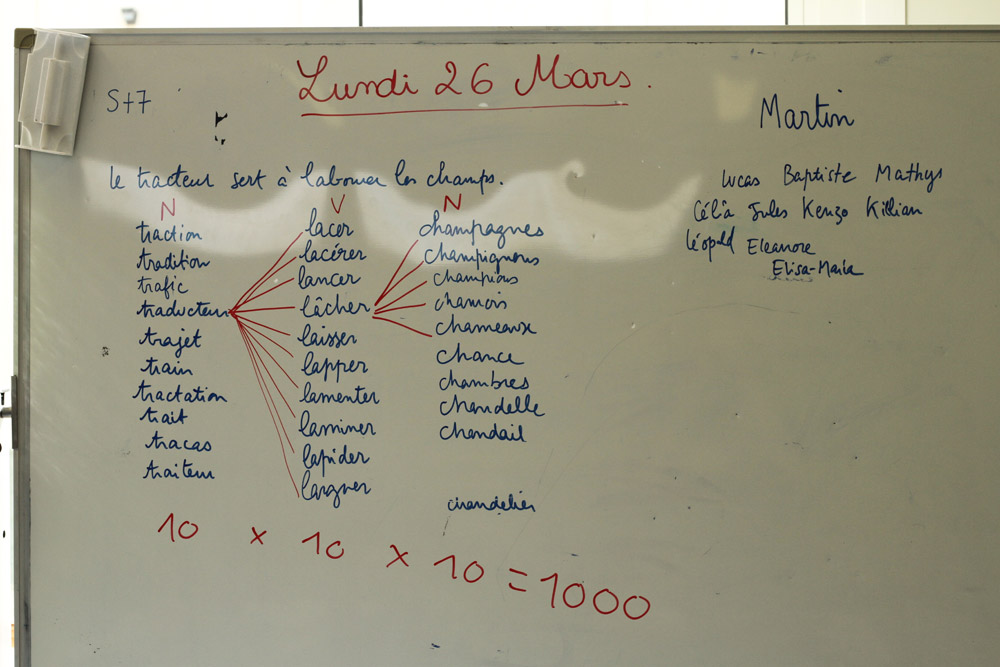 Lundi 26 Mars.
S+7
Martin
le tracteur sert à labourer les champs.
Lucas Baptiste Mathys
Célia Jules Kenzo Killian
Léopold Eleanore
Elisa-Maria
N V N
traction lacer champagnes
tradition lacérer champignons
trafic lancer champions
traducteur lâcher chamois
trajet laisser chameaux
train lapper chance
tractation lamenter chambres
trait laminer chandelle
tracas lapider chandail
traiteur larguer chandelier
10 x 10 x 10 = 1000